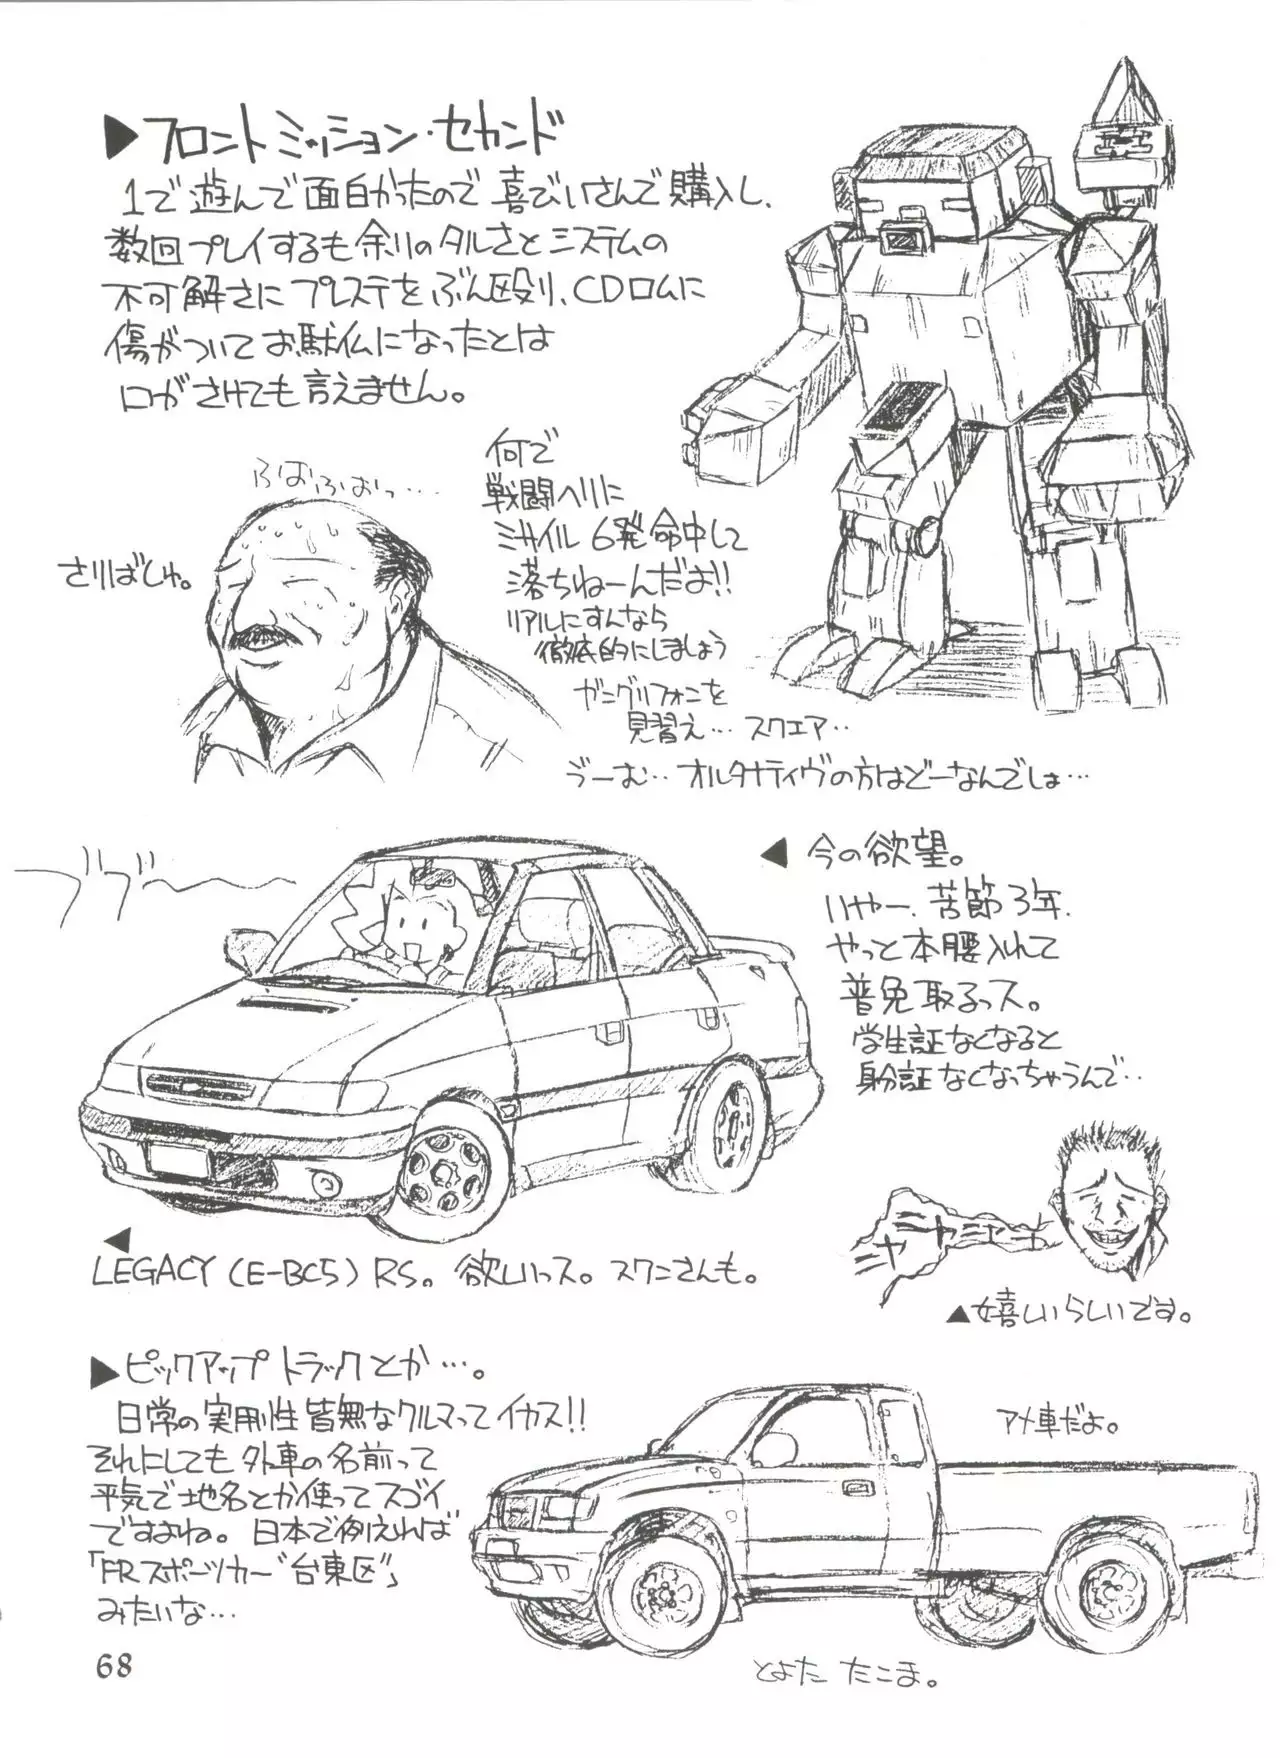 ▶フロントミッション・セカンド
1で遊んで面白かったので喜びいさんで購入し、
数回プレイするも余りのタルさとシステムの
不可解さにプレステをぶん殴り、CDロムに
傷がついてお駄仏になったとは
口がさけても言えません。
ふばふばっ…
さりばしゅ。
何で
戦闘ヘリに
ミサイル6発命中して
落ちねーんだよ!!
リアルにすんなら
徹底的にしましょう
ガングリフォンを
見習え…スクエア‥
ゔーむ‥オルタナティヴの方はどーなんでしょ…
ブブーーー
◀今の欲望。
いやー、苦節3年、
やっと本腰入れて
普免取るっス。
学生証なくなると
身分証なくなっちゃうんで‥
ニヤニヤ
▲嬉しいらしいです。
◀
LEGACY(E-BC5)RS。欲しいっス。スワニさんも。
▶ピックアップトラックとか…。
日常の実用性皆無なクルマってイカス!!
それにしても外車の名前って
平気で地名とか使ってスゴイ
ですよね。日本で例えれば
「FRスポーツカー"台東区"」
みたいな…
アメ車だよ。
とよた たこま。
68